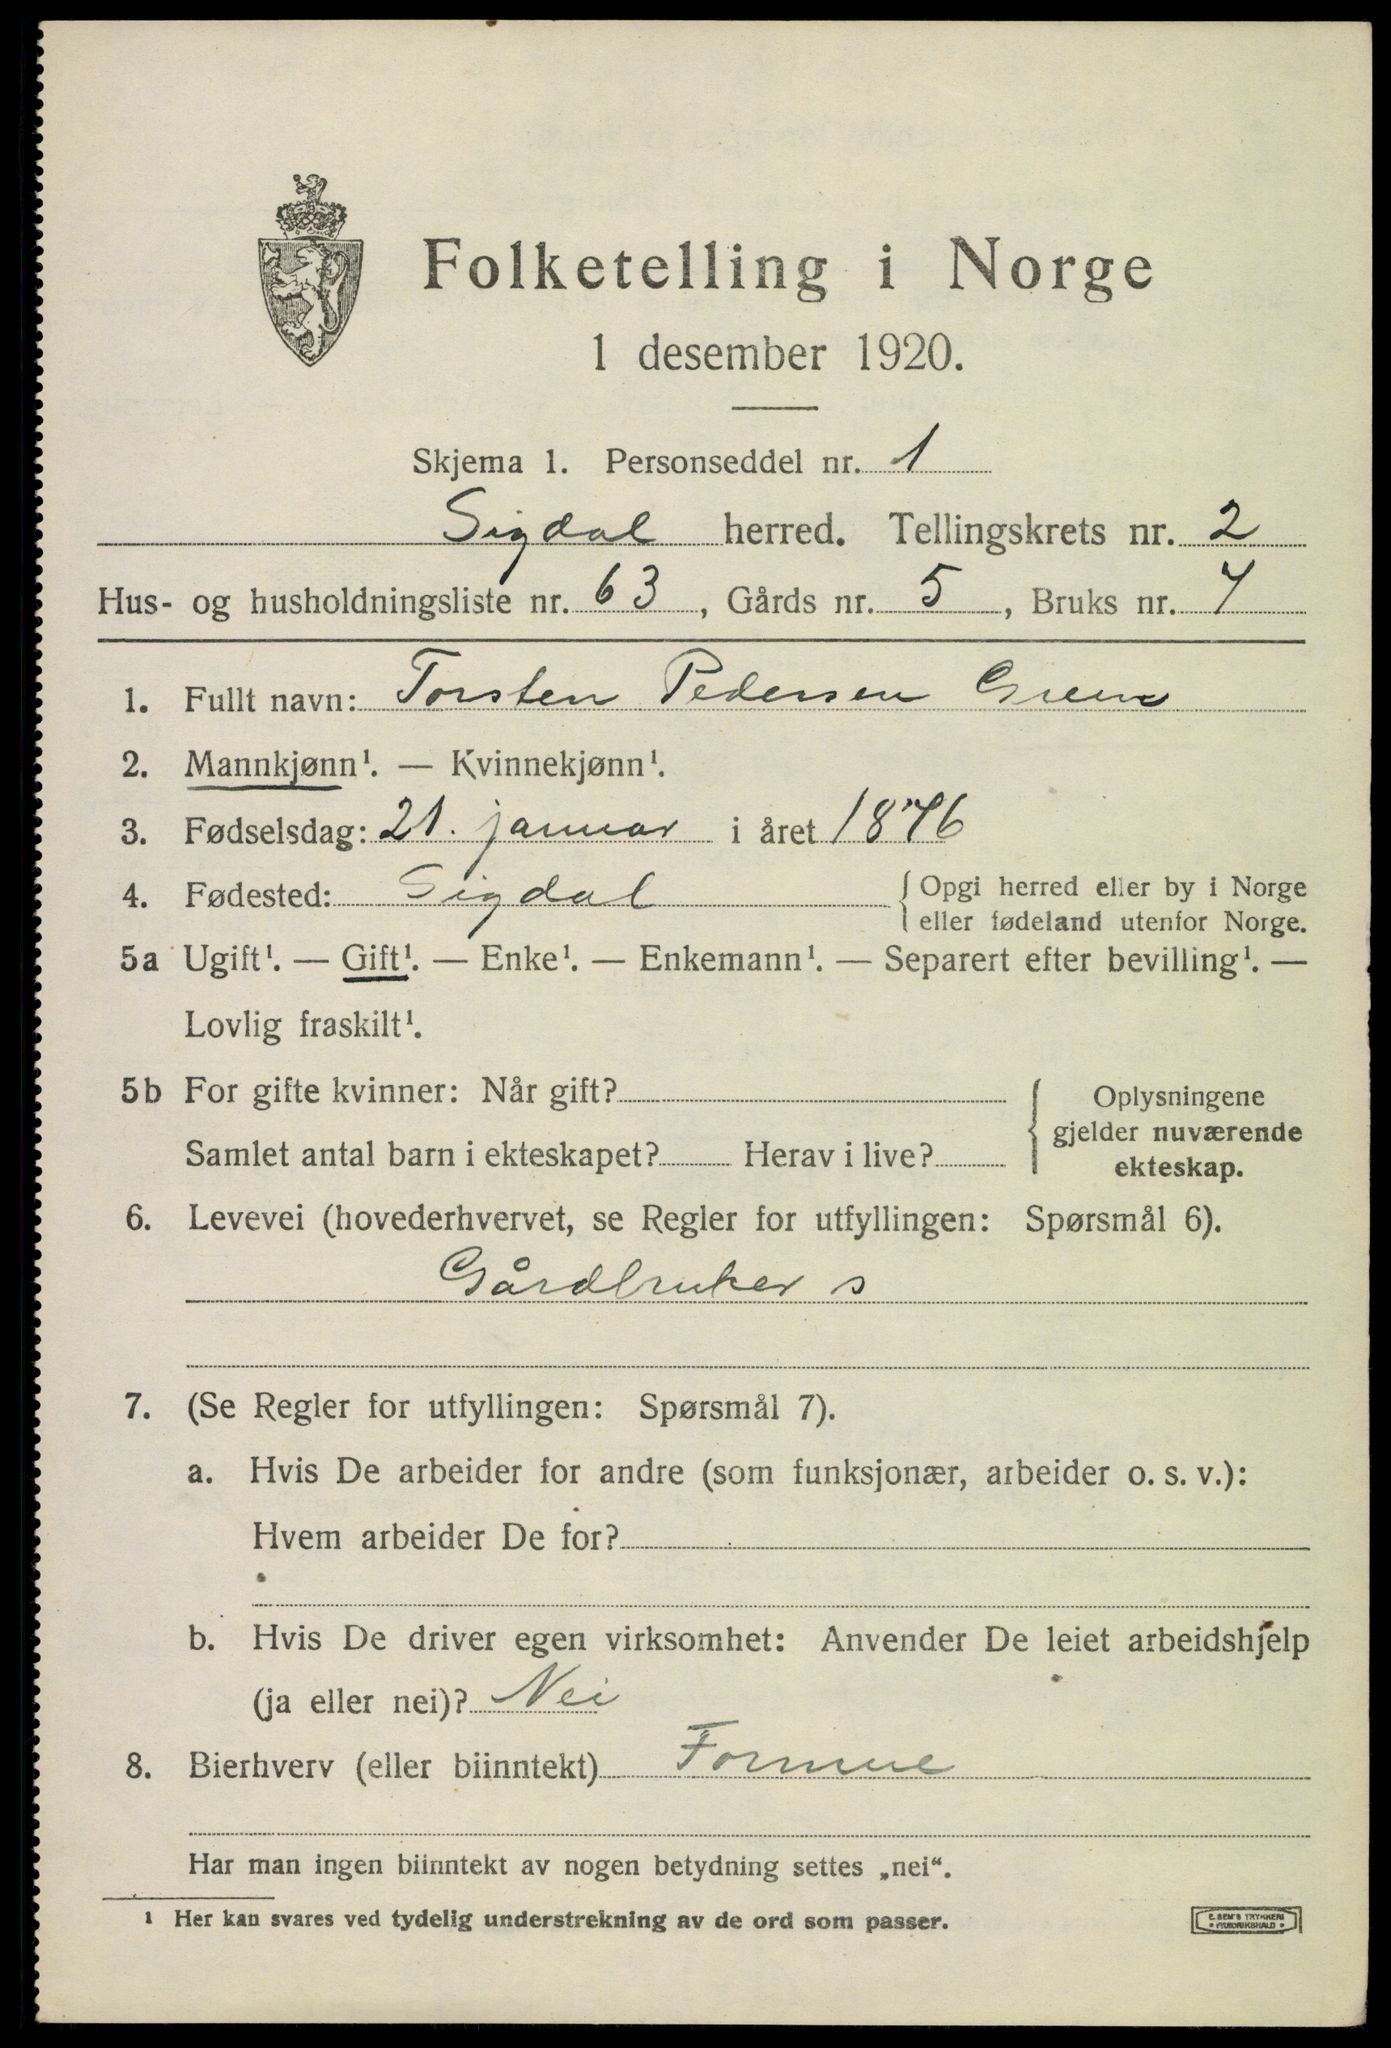 Folketelling i Norge
1 desember 1920.
Skjema 1. Personseddel nr. 1
Sigdal herred. Tellingskrets nr. 2
Hus- og husholdningsliste nr. 63, Gårds nr. 5, Bruks nr. 7
1. Fullt navn: Torsten Pedersen
2. Mannkjønn¹. — Kvinnekjønn¹.
3. Fødselsdag: 21. januar i året 1876
4. Fødested: Sigdal { Opgi herred eller by i Norge
eller fødeland utenfor Norge.
5a Ugift¹. — Gift¹. — Enke¹. — Enkemann¹. — Separert efter bevilling¹. —
Lovlig fraskilt¹.
5b For gifte kvinner: Når gift?
Samlet antal barn i ekteskapet? Herav i live?
Oplysningene
gjelder nuværende
ekteskap.
6. Levevei (hovederhvervet, se Regler for utfyllingen: Spørsmål 6).
Gårdbruker s
7. (Se Regler for utfyllingen: Spørsmål 7).
a. Hvis De arbeider for andre (som funksjonær, arbeider o. s. v.):
Hvem arbeider De for?
b. Hvis De driver egen virksomhet: Anvender De leiet arbeidshjelp
(ja eller nei)? Nei
8. Bierhverv (eller biinntekt) Formue
Har man ingen biinntekt av nogen betydning settes „nei“.
¹ Her kan svares ved tydelig understrekning av de ord som passer.
E. SEM'S TRYKKERI
FREDRIKSHALD